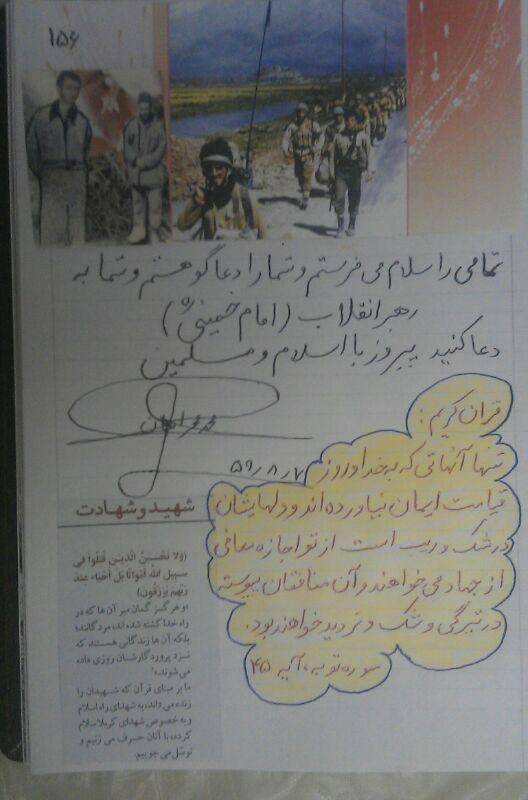 ۱۵۶
تمامی را سلام می فرستم و شما را دعاگو هستم و شما به
رهبر انقلاب (امام خمینی ره)
دعا کنید پیروز با اسلام و مسلمین
۵۹/۸/۷
قرآن کریم:
تنها آنهائی که به خدا و روز
قیامت ایمان نیاورده اند و دلهایشان
در شک و ریب است از تو اجازه معافی
از جهاد می خواهند و آن منافقان پیوسته
در تیرگی و شک و تردید خواهند بود.
سوره توبه، آیه ۴۵
شهید و شهادت
(وَلا تَحْسَبَنَّ الَّذینَ قُتِلُوا فی
سَبیلِ اللّهِ أَمْواتًا بَلْ أَحْیاءٌ عِنْدَ
رَبِّهِمْ یُرْزَقُونَ)
«و هرگز گمان مبر آن‌ها که در
راه خدا کشته شده‌اند، مردگانند؛
بلکه آن‌ها زندگانی هستند که
نزد پروردگارشان روزی داده
می‌شوند.»
ما بر مبنای قرآن که شهیدان را
زنده می داند، به شهدای راه اسلام
و به خصوص شهدای کربلا سلام
کرده، با آنان حرف می زنیم و
توسّل می جوییم.